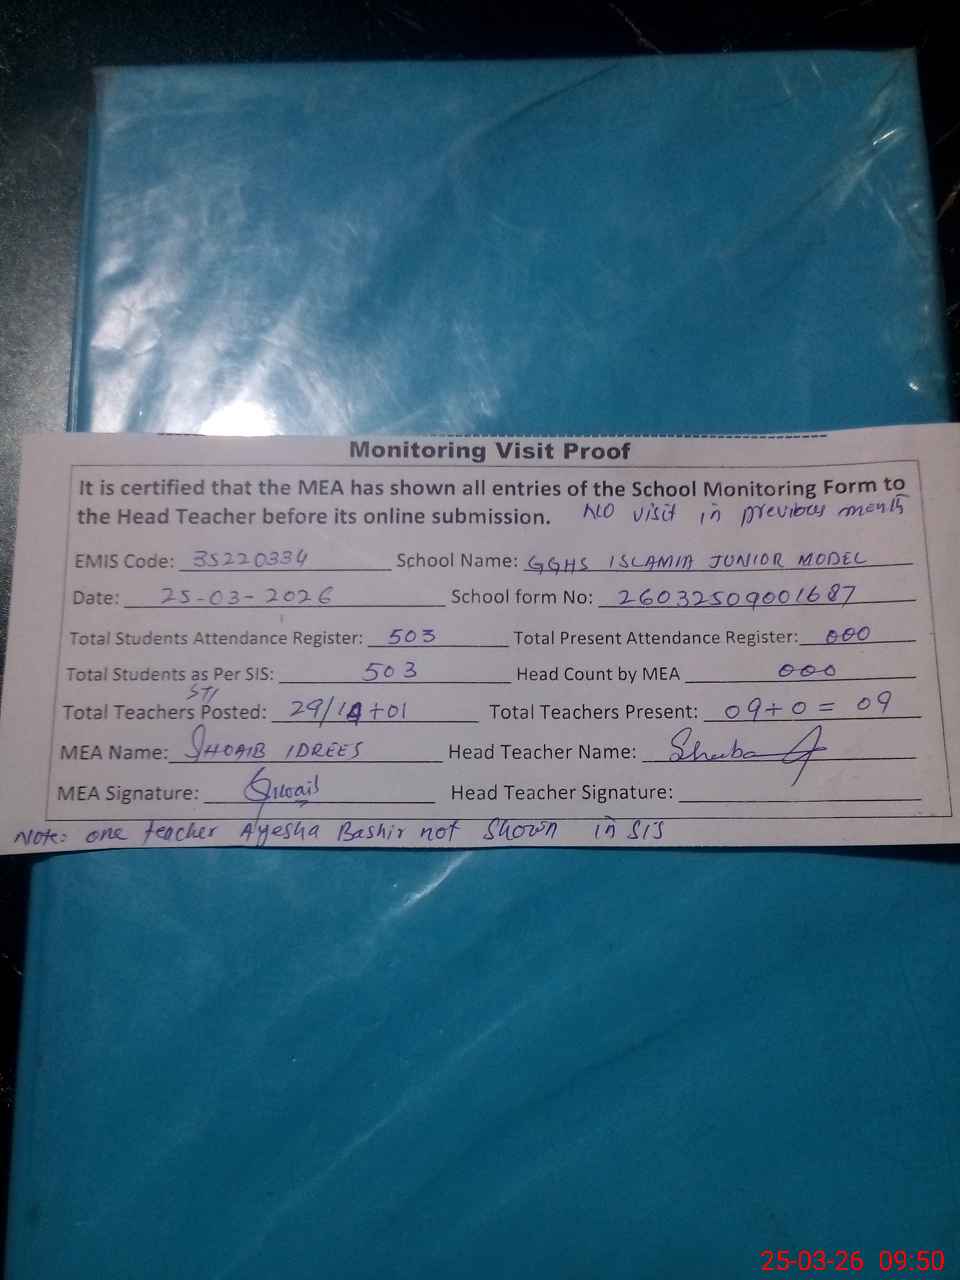 Monitoring Visit Proof
It is certified that the MEA has shown all entries of the School Monitoring Form to
the Head Teacher before its online submission. No visit in previous month
EMIS Code: 35220334 School Name: GGHS ISLAMIA JUNIOR MODEL
Date: 25-03-2026 School form No: 26032509001687
Total Students Attendance Register: 503 Total Present Attendance Register: 000
Total Students as Per SIS: 503 Head Count by MEA 000
STI
Total Teachers Posted: 29/ +01 Total Teachers Present: 09+0 = 09
MEA Name: SHOAIB IDREES Head Teacher Name:
MEA Signature: Shoaib Head Teacher Signature:
Note: one teacher Ayesha Bashir not shown in SIS
25-03-26 09:50